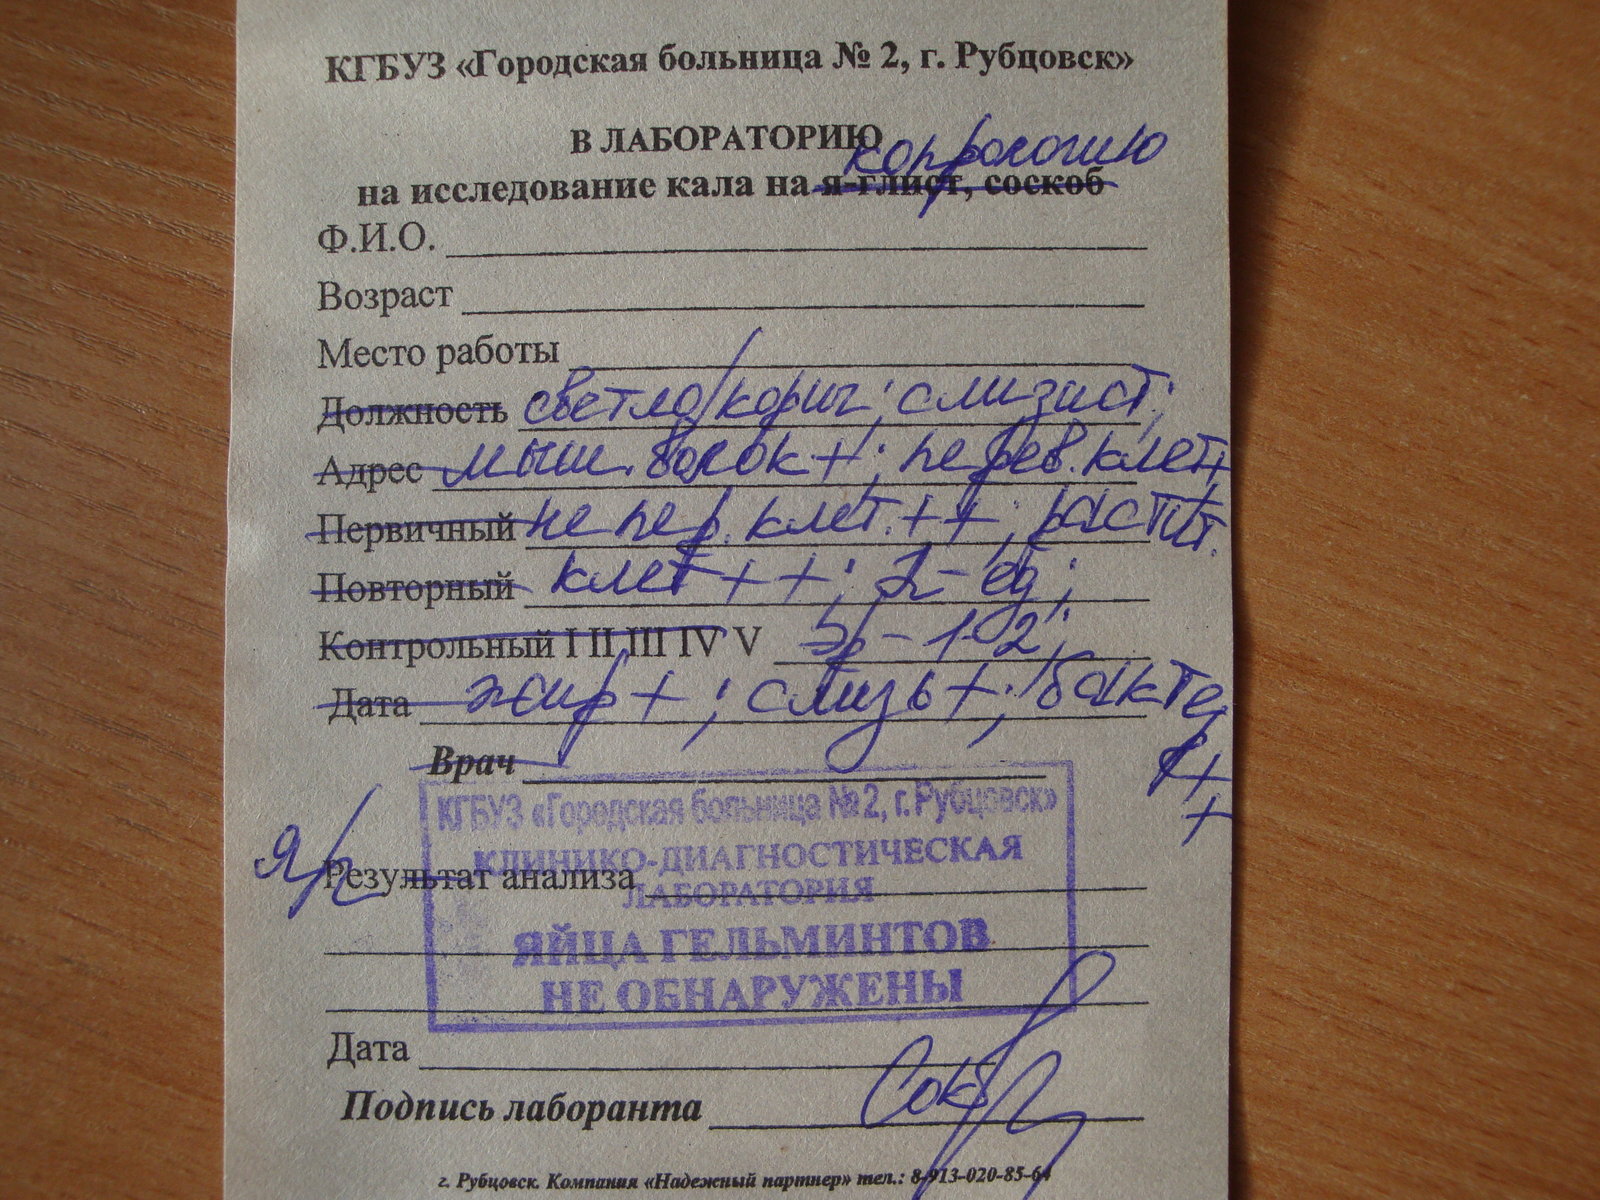 КГБУЗ «Городская больница № 2, г. Рубцовск»
В ЛАБОРАТОРИЮ
копрологию
на исследование кала на я-глист, соскоб
Ф.И.О.
Возраст
Место работы
Должность светло/корич; слизист;
Адрес мыш. волок +; перев. клет +
Первичный непер. клет. ++; растит.
Повторный клет ++; L - ед;
Контрольный I II III IV V Эр - 1-2;
Дата жир +; слизь +; бактер
++
Врач
КГБУЗ «Городская больница №2, г. Рубцовск»
КЛИНИКО-ДИАГНОСТИЧЕСКАЯ
Я/г Результат анализа
ЛАБОРАТОРИЯ
ЯЙЦА ГЕЛЬМИНТОВ
НЕ ОБНАРУЖЕНЫ
Дата
Подпись лаборанта
г. Рубцовск. Компания «Надежный партнер» тел.: 8-913-020-85-64